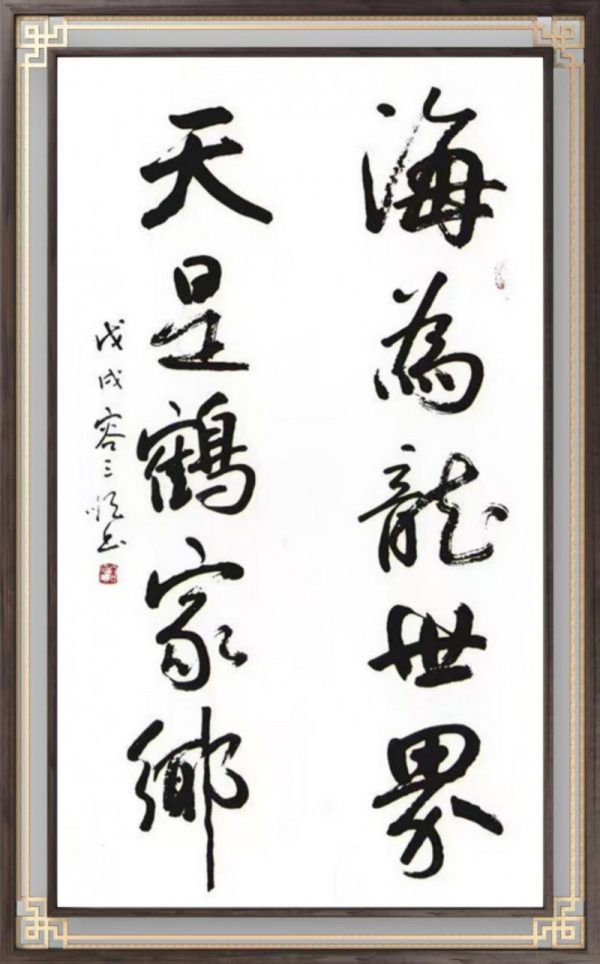 海為龍世界
天是鶴家鄉
戊戌容三恒書